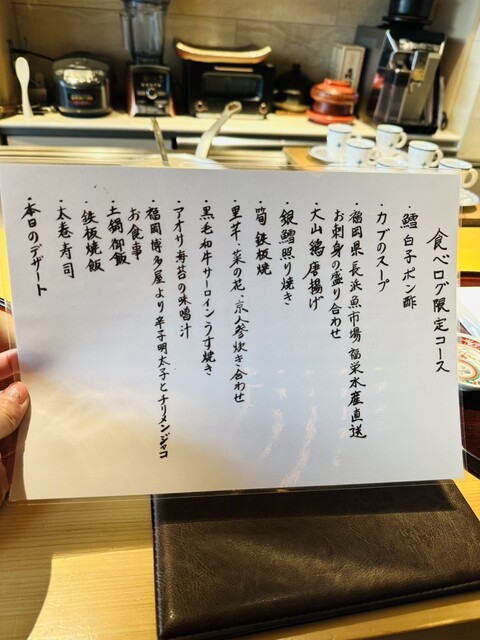 食べログ限定コース
・鱈白子ポン酢
・カブのスープ
・福岡県長浜魚市場 福栄水産直送
お刺身の盛り合わせ
・大山鶏唐揚げ
・銀鱈照り焼き
・筍 鉄板焼
・里芋、菜の花、京人参炊き合わせ
・黒毛和牛サーロインうす焼き
・アオサ海苔の味噌汁
・福岡博多屋より辛子明太子とチリメンジャコ
お食事
・土鍋御飯
・鉄板焼飯
・太巻寿司
・本日のデザート